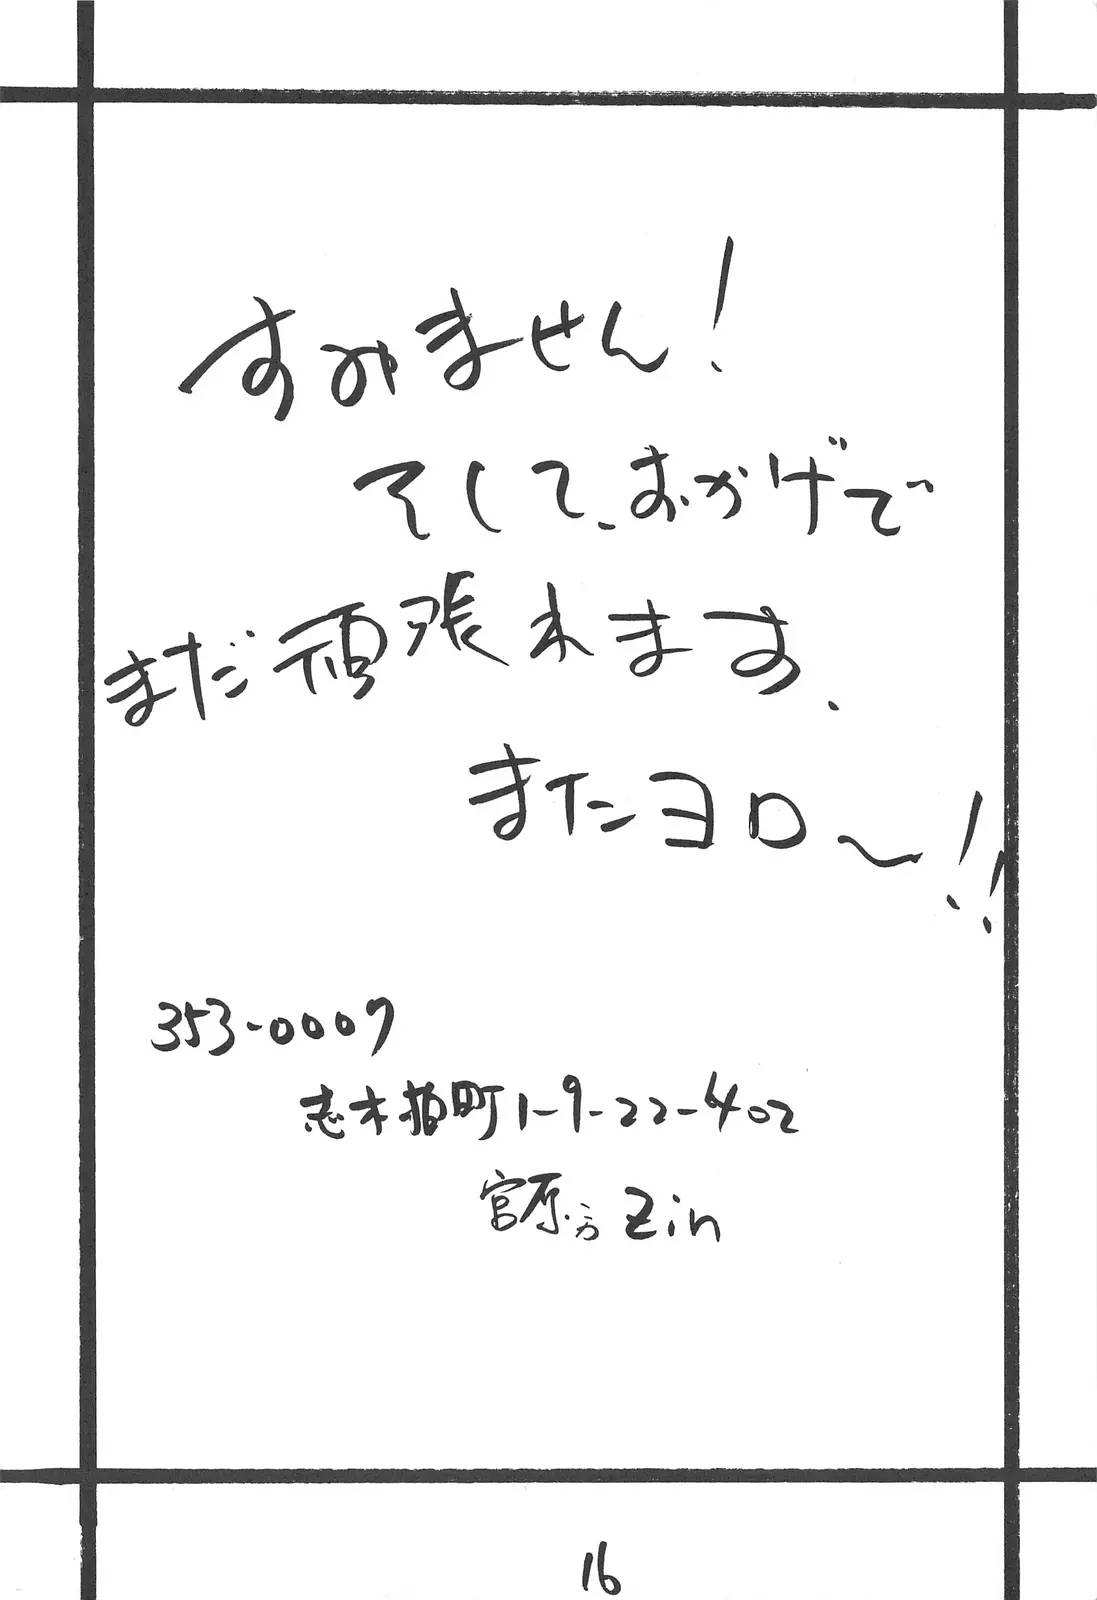 すみません!
そして、おかげで
まだ頑張れます、
またヨロ〜!!
353-0007
志木柏町1-9-22-402
宮原方 Zin
16